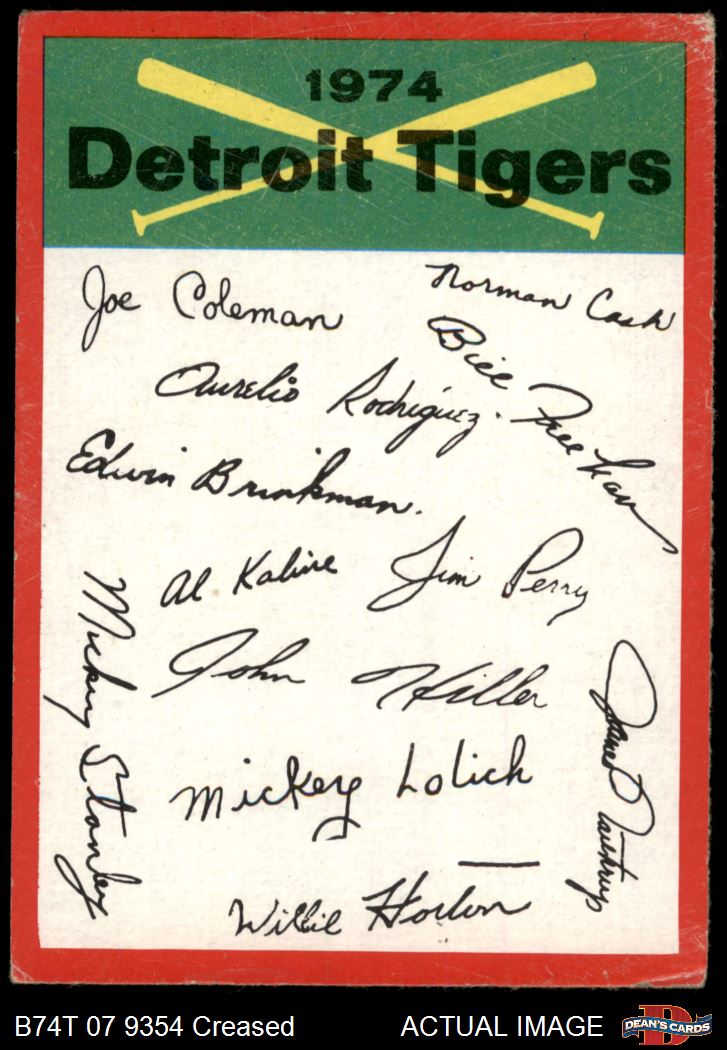 1974
Detroit Tigers
Joe Coleman
Norman Cash
Bill Freehan
Aurelio Rodriguez.
Edwin Brinkman.
Al Kaline
Jim Perry
Mickey Stanley
John Hiller
James Northrup
Mickey Lolich
Willie Horton
B74T 07 9354 Creased
ACTUAL IMAGE
D
DEAN'S CARDS